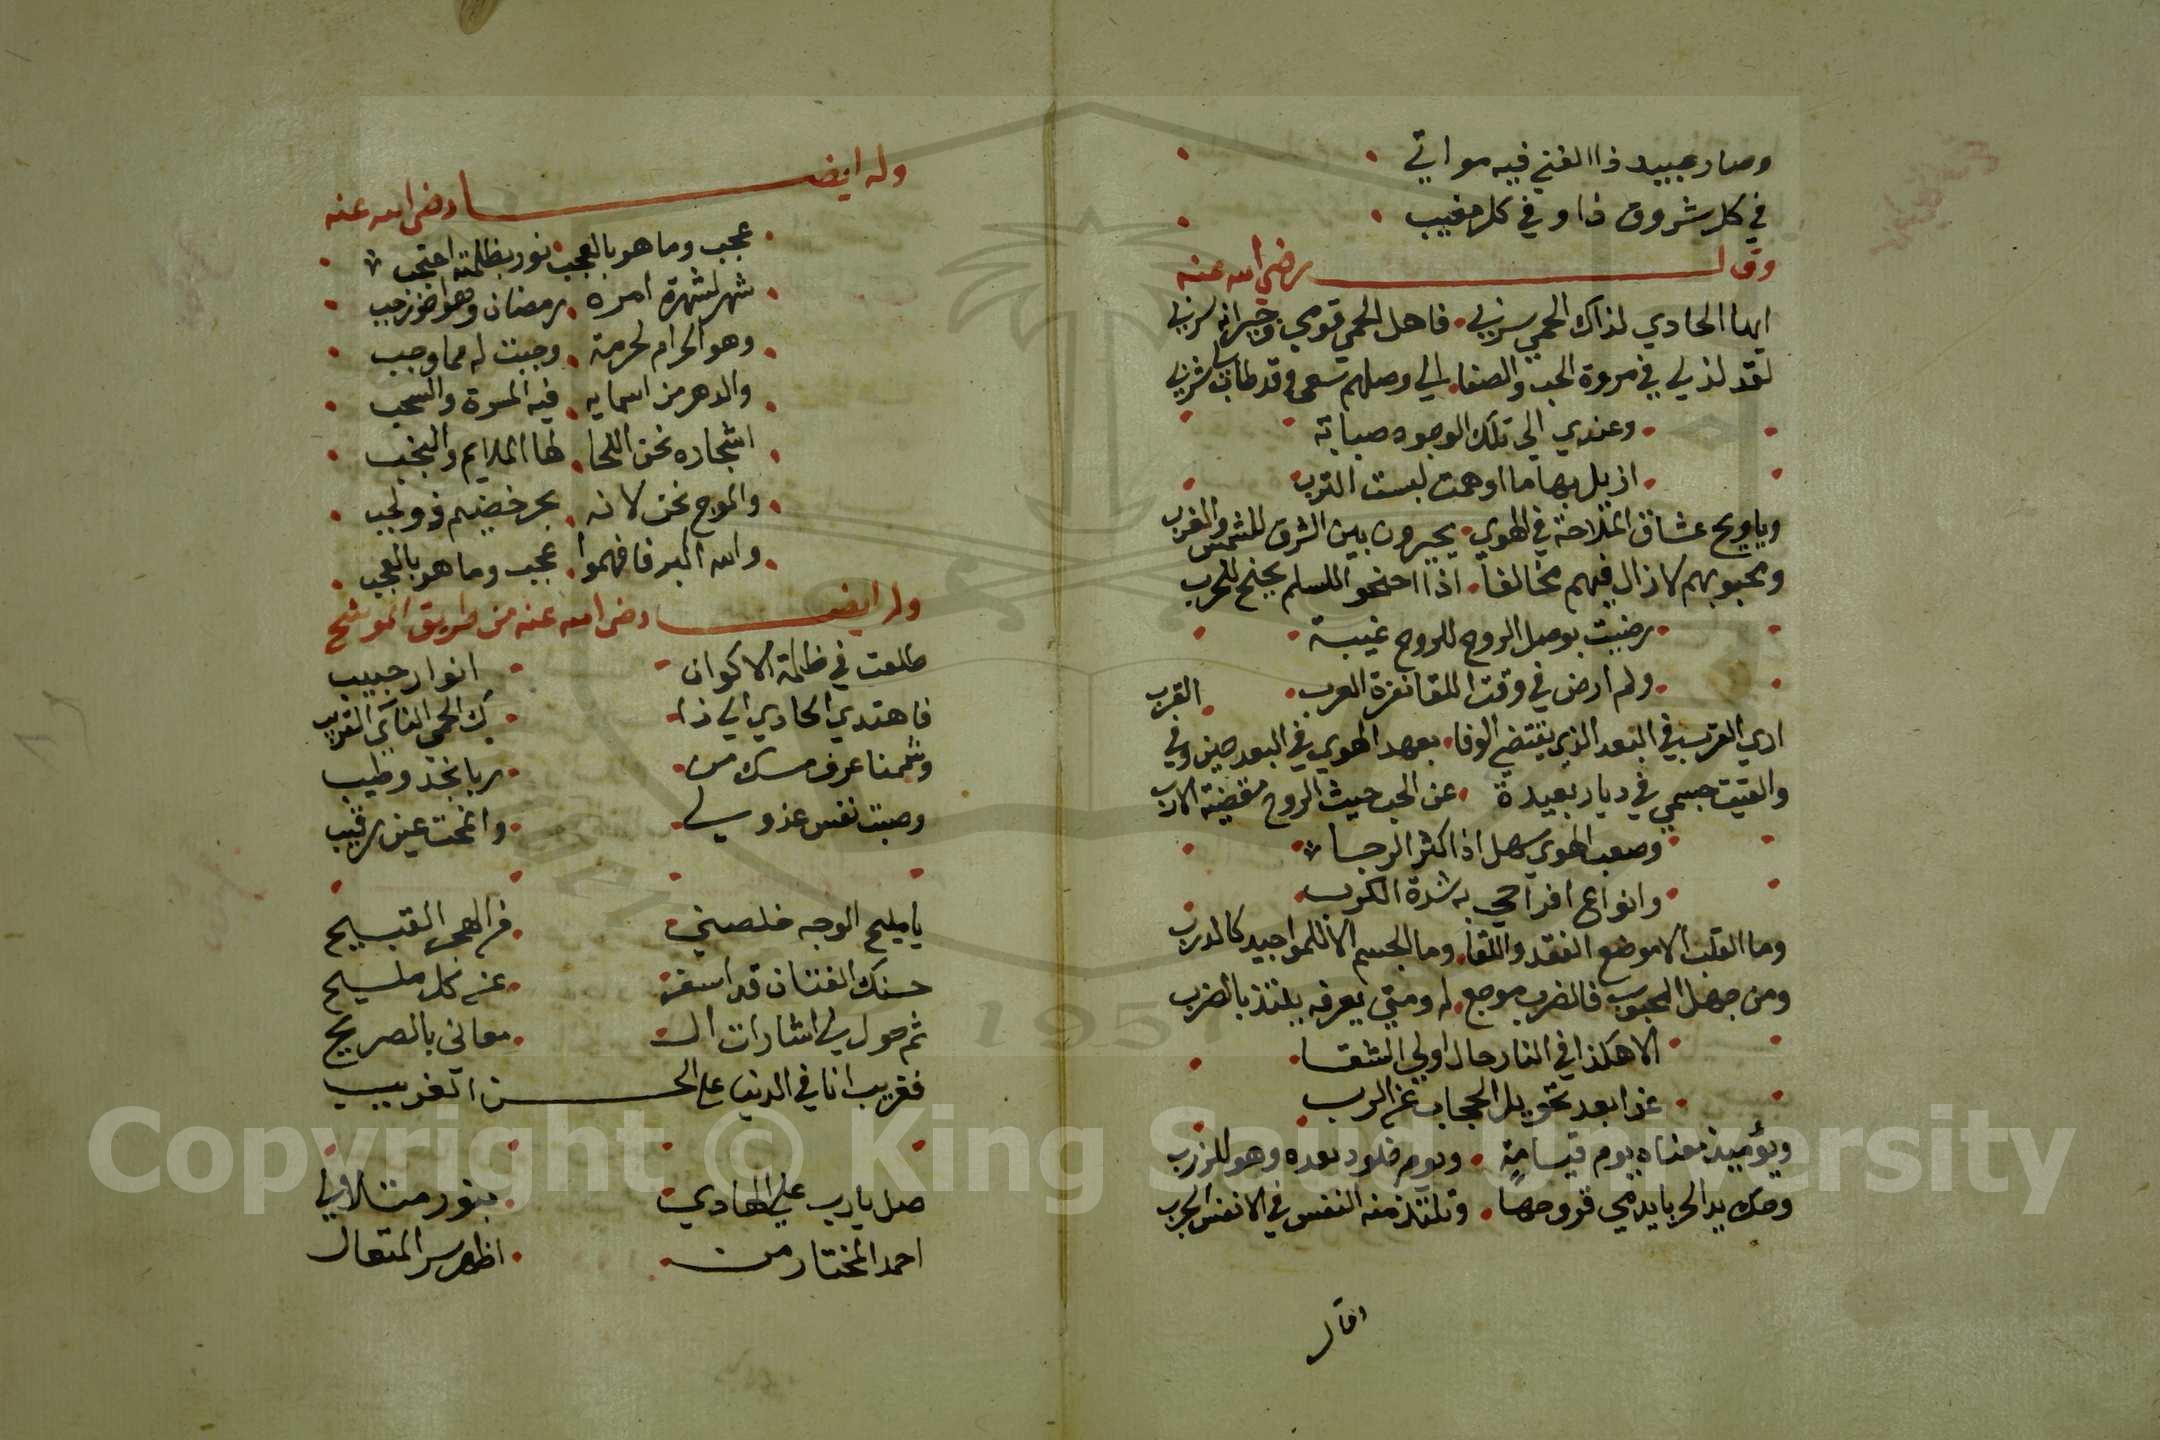 وصار عبيد ذا الفتي فيه مواتي
في كل شروق ذا وفي كل مغيب
وقال رضي الله عنه
ايها الحادي لذاك الحمي سر بي فاهل الحمي قومي وجيرانه سربي
لقد لذ لي في مروة الحب والصفا الي وصلهم سعي وقد طاب لي شربي
وعندي الي تلك الوجوه صبابة
ازيل بها ما اوهمت لبست الترب
ويا ويح عشاق الملاحة في الهوي يحيرون بين الشرق للشمس والغرب
ومحبوبهم لا زال فيهم مخالفا اذا جنحوا للسلم يجنح للحرب
رضيت بوصل الروح للروح غيبة
ولم ارض في وقت اللقا نفزة العرب
اري القرب في البعد الذي يقتضي الوفا بعهد الهوي في البعد حين وفي القرب
والقيت جسمي في ديار بعيدة عن الحب حيث الروح مقضية الارب
وصعب الهوي سهل اذا كثر الرجا
وانواع افراحي به شدة الكرب
وما القلب الا موضع الفقد واللقا وما الجسم الا للمواجيد كالدرب
ومن جهل المحبوب فالضرب موجع له ومتي يعرفه يلتذ بالضرب
الا هكذا في النار حال اولي الشقا
غدا بعد تحويل الحجاب عن الرب
ويؤميذ معناه يوم قيامة ويوم خلود بعده وهو للزرب
وحك يد الجربا يدمي قروحها وتلتذ منه النفس في الانفس الجرب
وله ايضا رضي الله عنه
عجب وما هو بالعجب نور بظلمته احتجب
شهر لشهرة امره رمضان وهو اخو رجب
وهو الحرام لحرمة وجبت له مما وجب
والدهر من اسمايه فيه المسرة والشجب
اشجاره نحن اللحا لها الملايم والنجب
والموج نحن لانه بحر خضم ذو لجب
والله اكبر فافهموا عجب وما هو بالعجب
وله ايضا رضي الله عنه من طريق الموشح
طلعت في ظلمة الاكوان انوار حبيب
فاهتدي الحادي الي ذا ك الحمي النائي القريب
وشممنا عرف مسك من ربا نجد وطيب
وصبت نفس عذولي وانمحت عين رقيب
يا مليح الوجه خلصني من الهجر القبيح
حسنك الفتان قد اسفر عن كل مليح
ثم حول لي اشارات الـ معاني بالصريح
فغريب انا في الدنيا علي الحسن الغريب
صل يا رب علي الهادي بنور متلالي
احمد المختار من اظهر سر المتعال
Copyright © King Saud University
1957